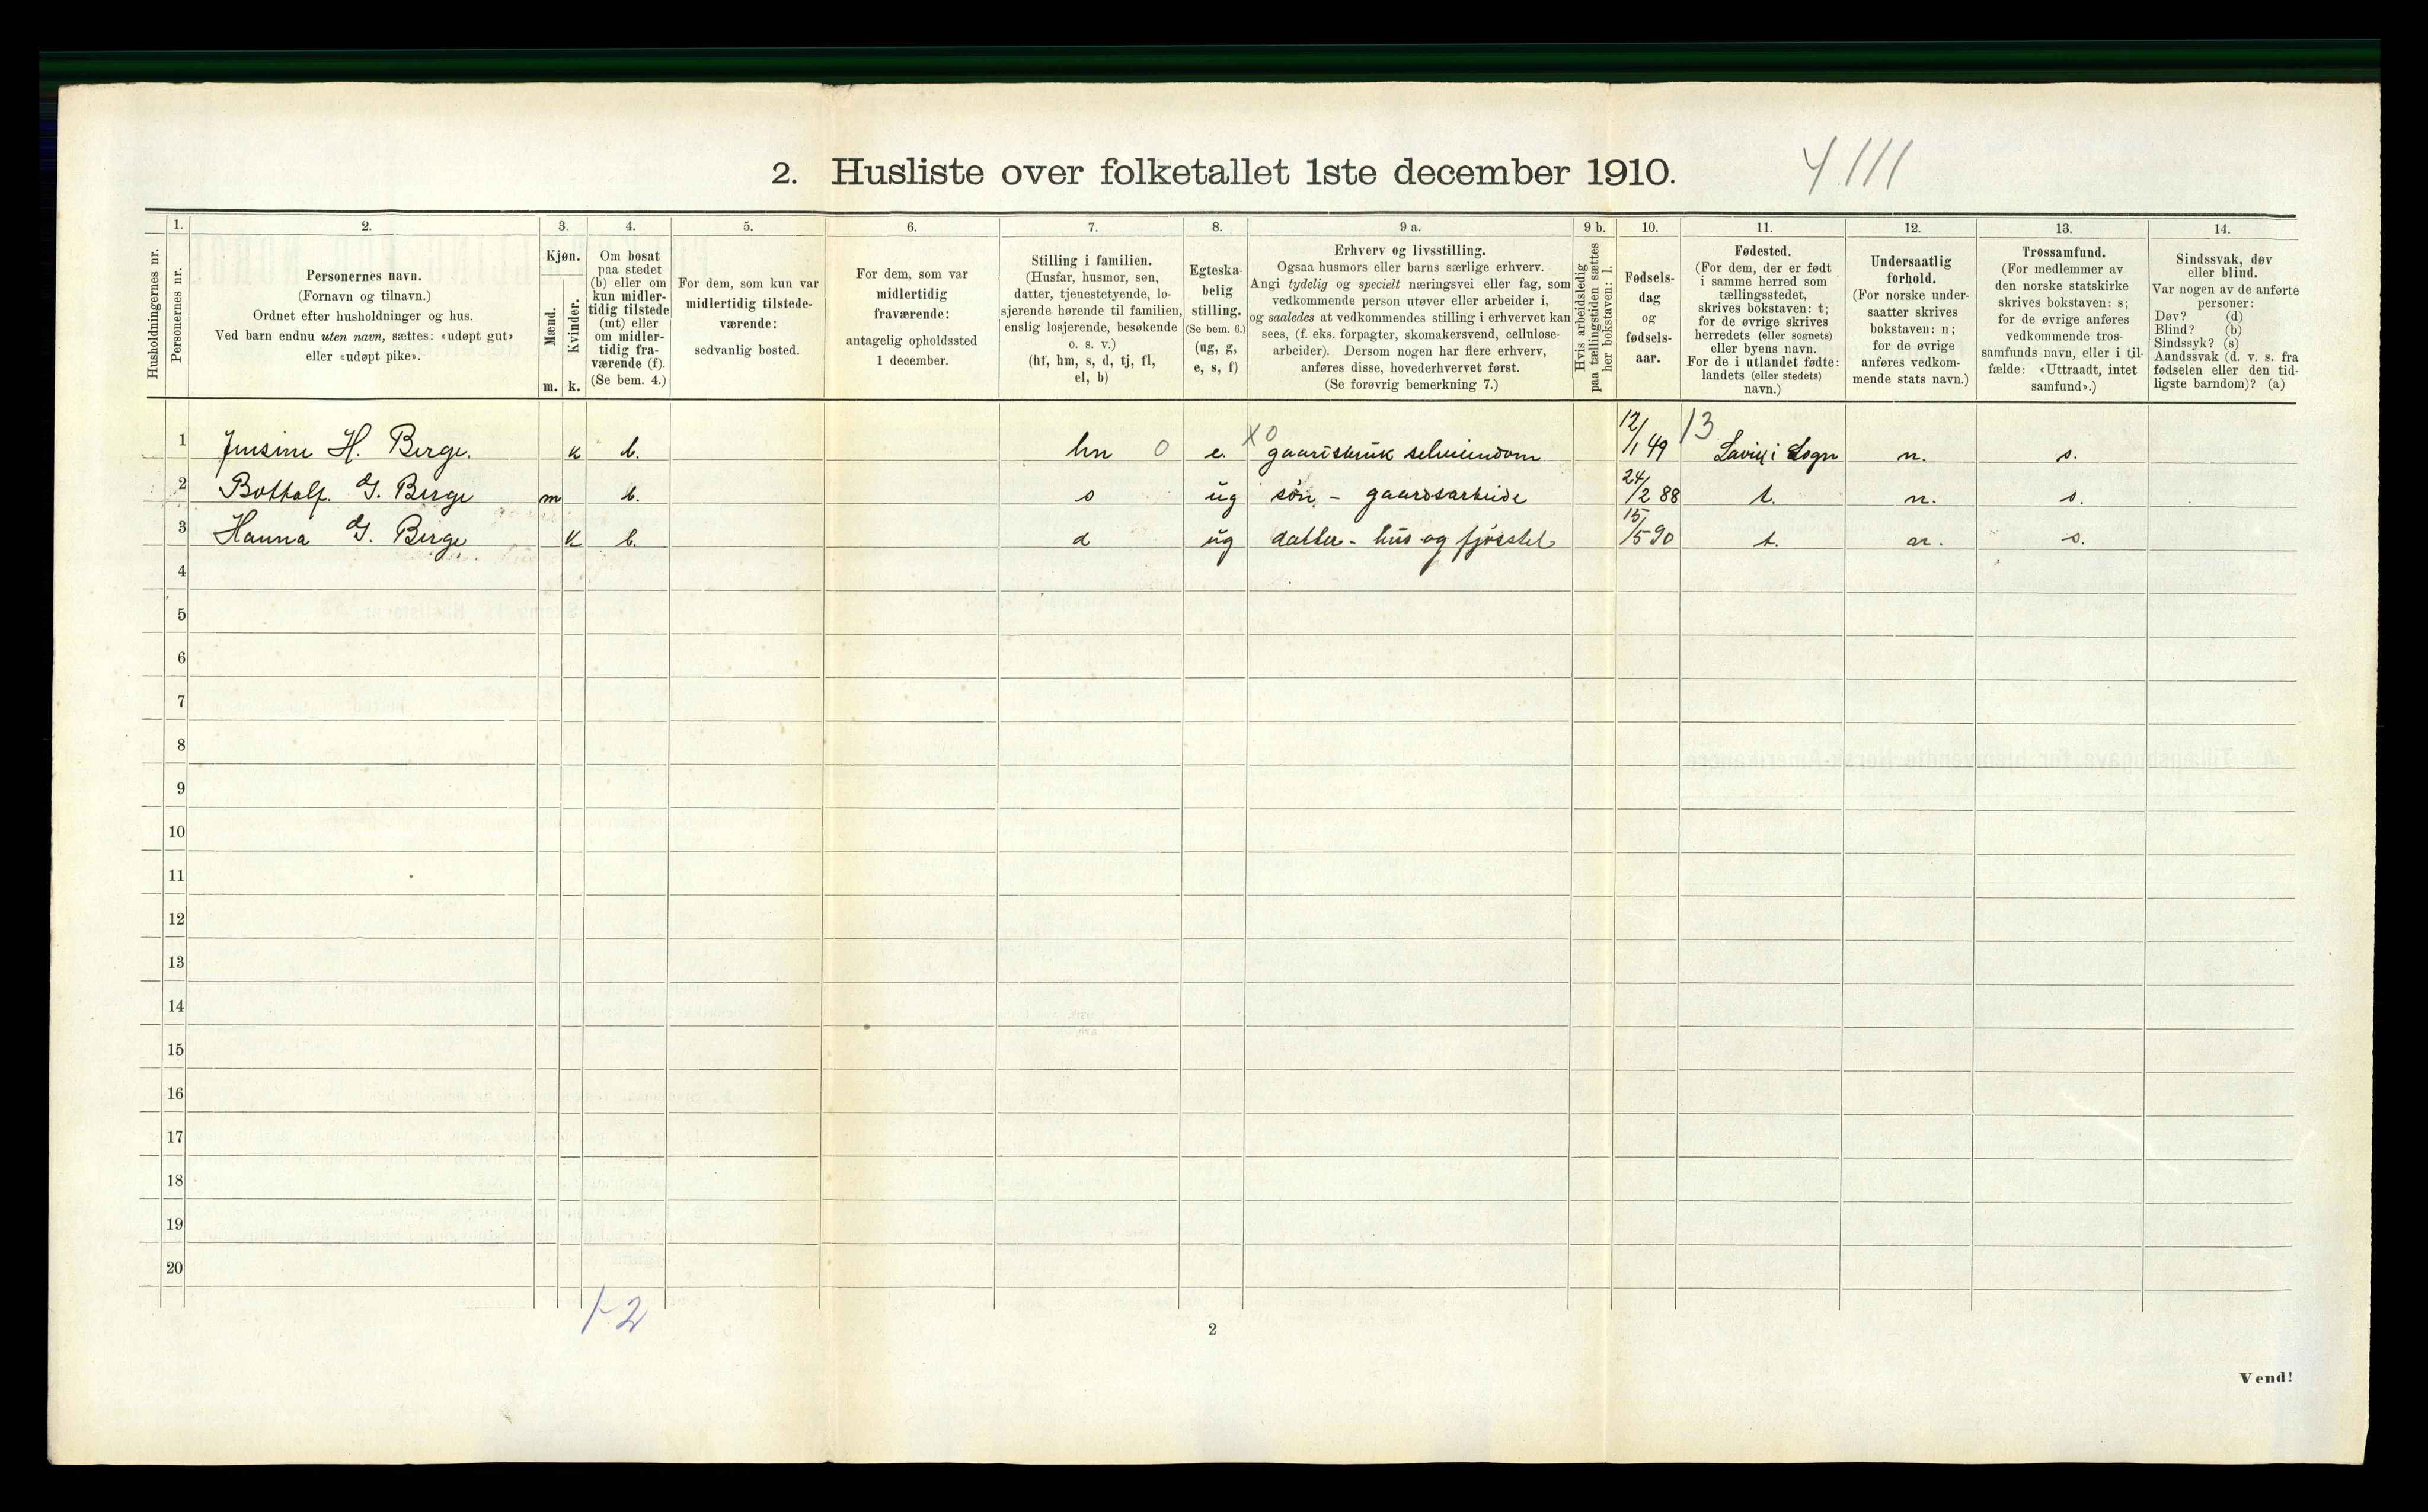 2. Husliste over folketallet 1ste december 1910.
4111
Husholdningernes nr.
1.
Personernes nr.
2.
Personernes navn.
(Fornavn og tilnavn.)
Ordnet efter husholdninger og hus.
Ved barn endnu uten navn, sættes: «udøpt gut»
eller «udøpt pike».
3.
Kjøn.
Mænd.
Kvinder.
m. k.
4.
Om bosat
paa stedet
(b) eller om
kun midler-
tidig tilstede
(mt) eller
om midler-
tidig fra-
værende (f).
(Se bem. 4.)
5.
For dem, som kun var
midlertidig tilstede-
værende:
sedvanlig bosted.
6.
For dem, som var
midlertidig
fraværende:
antagelig opholdssted
1 december.
7.
Stilling i familien.
(Husfar, husmor, søn,
datter, tjenestetyende, lo-
sjerende hørende til familien,
enslig losjerende, besøkende
o. s. v.)
(hf, hm, s, d, tj, fl,
el, b)
8.
Egteska-
belig
stilling.
(Se bem. 6.)
(ug, g,
e, s, f)
9 a.
Erhverv og livsstilling.
Ogsaa husmors eller barns særlige erhverv.
Angi tydelig og specielt næringsvei eller fag, som
vedkommende person utøver eller arbeider i,
og saaledes at vedkommendes stilling i erhvervet kan
sees, (f. eks. forpagter, skomakersvend, cellulose-
arbeider). Dersom nogen har flere erhverv,
anføres disse, hovederhvervet først.
(Se forøvrig bemerkning 7.)
9 b.
Hvis arbeidsledig
paa tællingstiden sættes
her bokstaven: l.
10.
Fødsels-
dag
og
fødsels-
aar.
11.
Fødested.
(For dem, der er født
i samme herred som
tællingsstedet,
skrives bokstaven: t;
for de øvrige skrives
herredets (eller sognets)
eller byens navn.
For de i utlandet fødte:
landets (eller stedets)
navn.)
12.
Undersaatlig
forhold.
(For norske under-
saatter skrives
bokstaven: n;
for de øvrige
anføres vedkom-
mende stats navn.)
13.
Trossamfund.
(For medlemmer av
den norske statskirke
skrives bokstaven: s;
for de øvrige anføres
vedkommende tros-
samfunds navn, eller i til-
fælde: «Uttraadt, intet
samfund».)
14.
Sindssvak, døv
eller blind.
Var nogen av de anførte
personer:
Døv? (d)
Blind? (b)
Sindssyk? (s)
Aandssvak (d. v. s. fra
fødselen eller den tid-
ligste barndom)? (a)
1 Jensine H. Berge. k b. hm 0 e. X0 gaardsbruk selveiendom 12/1 49 13 Lavig i Sogn n. s.
2 Bottolf. G. Berge m b. s ug søn - gaardsarbeide 24/2 88 t. n. s.
3 Hanna G. Berge k b. d ug datter - hus og fjøsstel 15/5 90 t. n. s.
4
5
6
7
8
9
10
11
12
13
14
15
16
17
18
19
20
1-2
2
Vend!